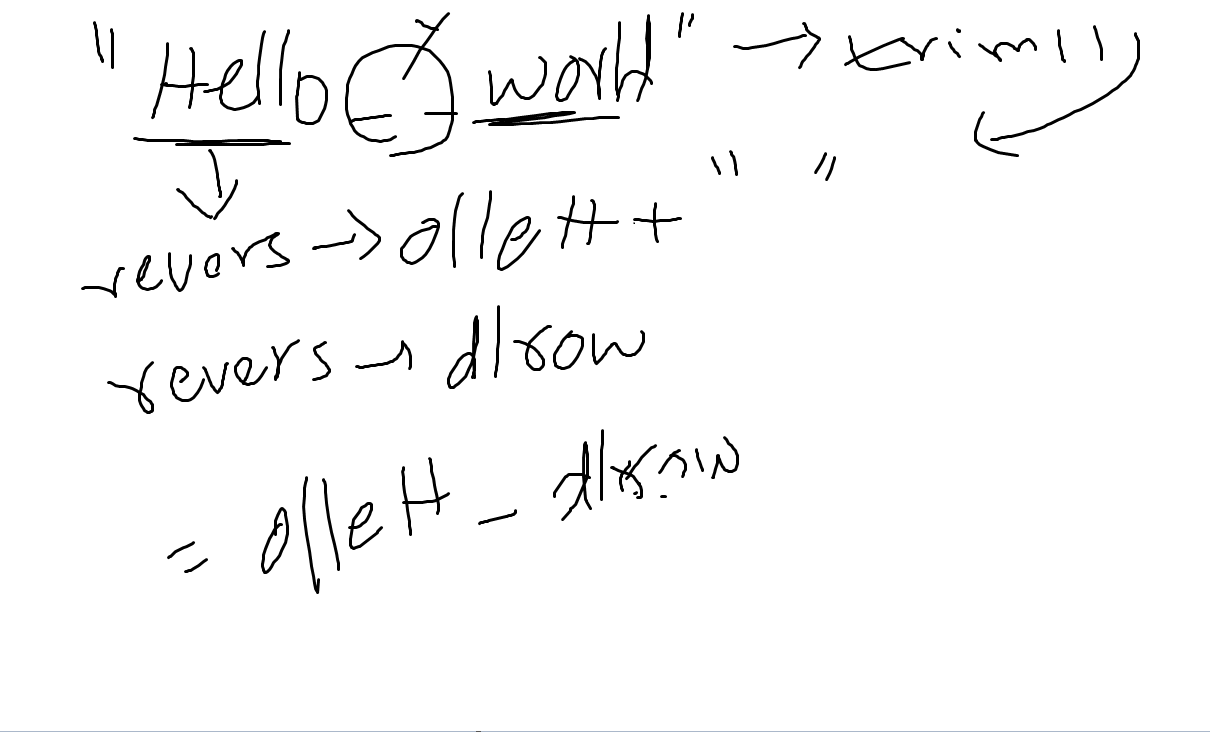 "Hello _ _ world" → trim()
revers → olleH + " "
revers → dlrow
= olleH _ dlrow